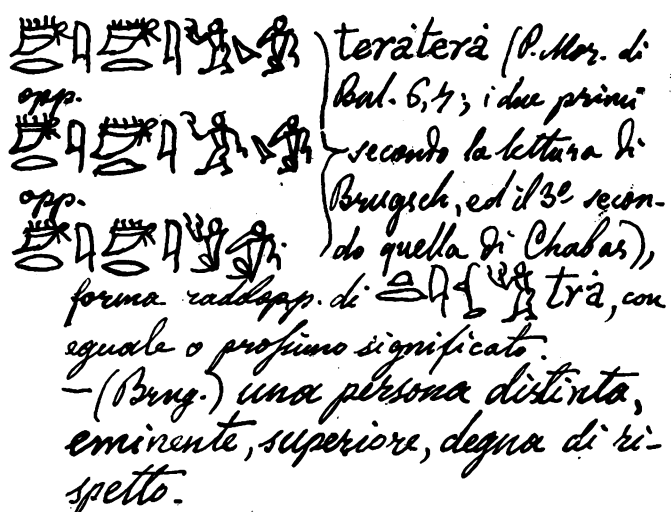 teràterà (P. Mor. di
opp.
Bal. 6,4; i due primi
secondo la lettura di
opp.
Brugsch, ed il 3º secon-
do quella di Chabas),
forma raddopp. di trà, con
eguale o prossimo significato.
— (Brug.) una persona distinta,
eminente, superiore, degna di ri-
spetto.